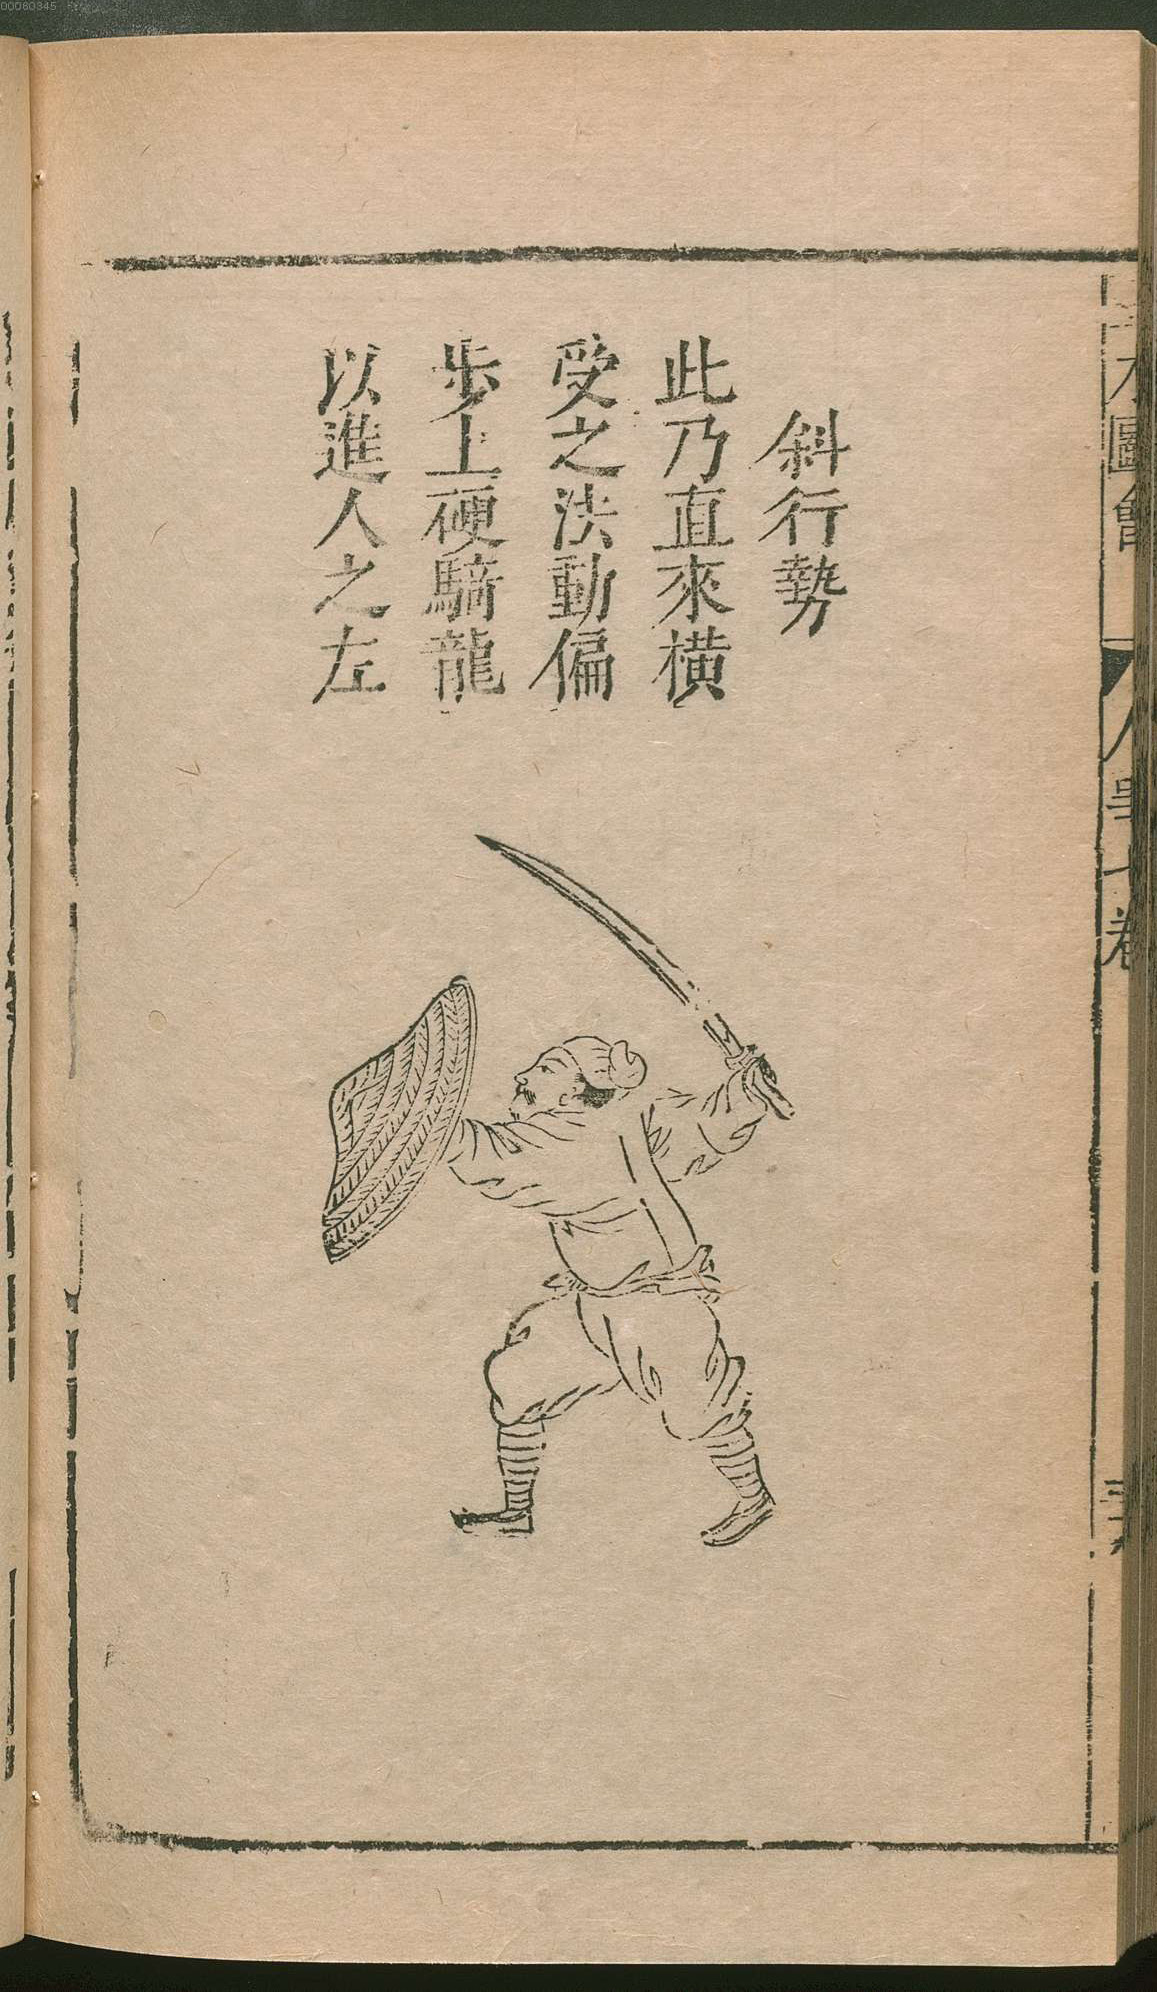 斜行勢
此乃直來橫
受之法動偏
步上硬騎龍
以進人之左
圖會
七卷
00060345